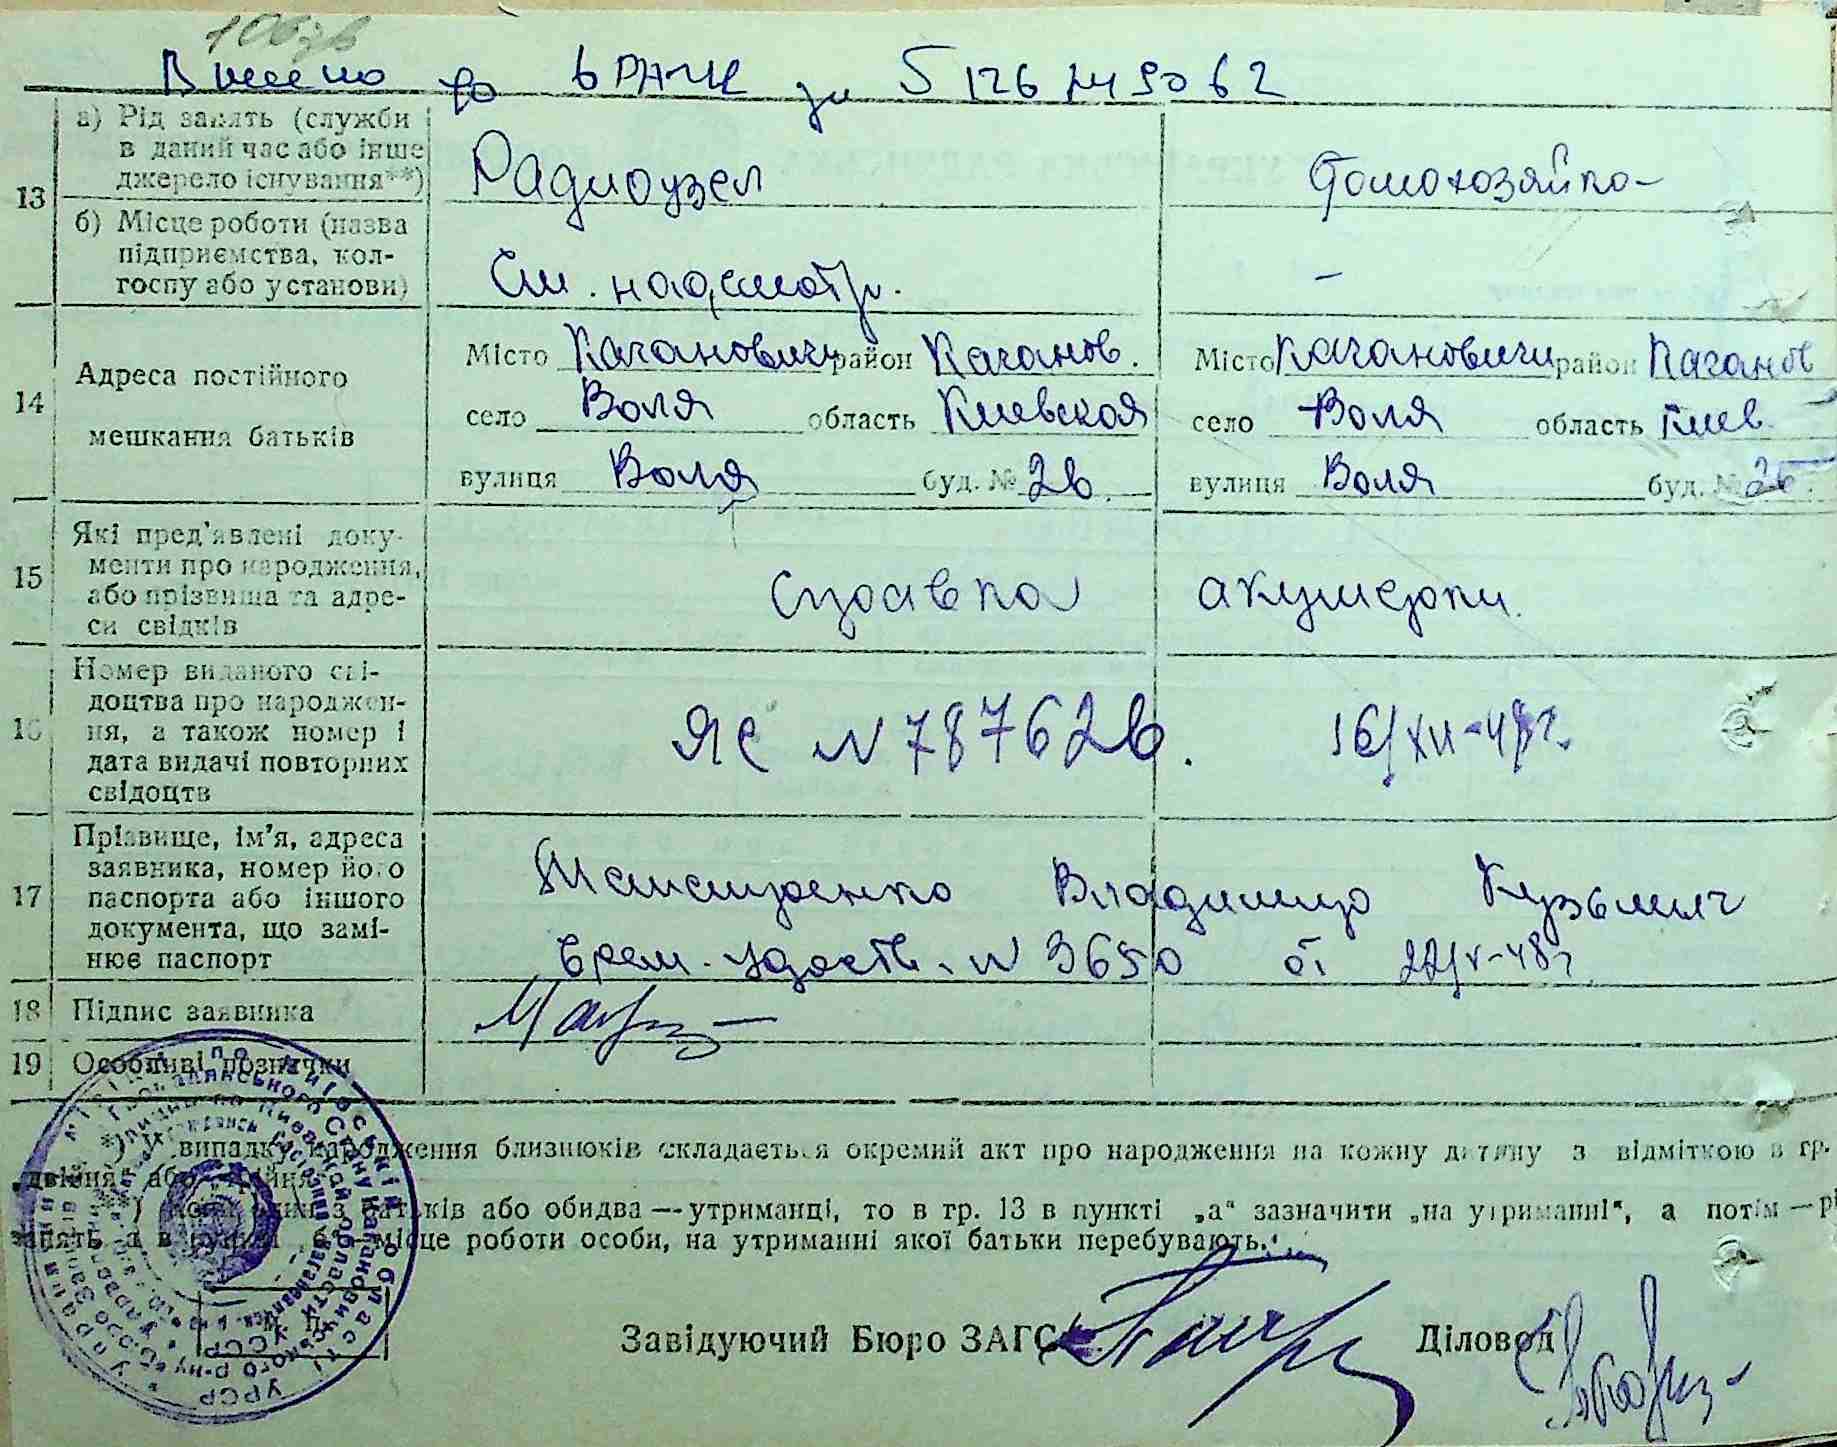 106зв
Внесено до ДРАЦС за
13
а) Рід занять (служби
в даний час або інше
джерело існування**)
Радиоузел
Домохозяйка
б) Місце роботи (назва
підприємства, кол-
госпу або установи)
Ст. надсмотр.
-
14
Адреса постійного
мешкання батьків
Місто Кагановичи район Каганов. Місто Кагановичи район Каганов
село Воля область Киевская село Воля область Киев.
вулиця Воля буд. № 26. вулиця Воля буд. № 26.
15
Які пред'явлені доку-
менти про народження,
або прізвища та адре-
си свідків
Справка акушерки.
16
Номер виданого сві-
доцтва про народжен-
ня, а також номер і
дата видачі повторних
свідоцтв
ЯС N 787626. 16/XII-48г.
17
Прізвище, ім'я, адреса
заявника, номер його
паспорта або іншого
документа, що замі-
нює паспорт
Владимир Кузьмич
Врем. удостов. N 3650 от 22/V-48г
18 Підпис заявника
19 Особливі позначки
*) У випадку народження близнюків складається окремий акт про народження на кожну дитину з відміткою в гр.
„двійня" або „трійня".
**) Коли один з батьків або обидва — утриманці, то в гр. 13 в пункті „а" зазначити „на утриманні", а потім — рі
занять, а в пункті „б" — місце роботи особи, на утриманні якої батьки перебувають.
М. П.
Завідуючий Бюро ЗАГС Діловод